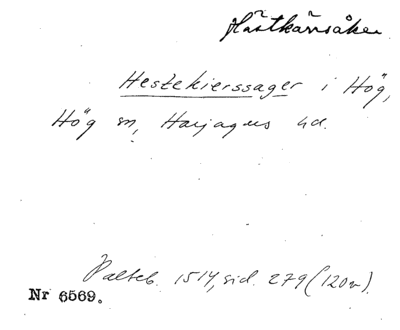 Hästkärrsåker
Hestekierssager i Hög,
Hög sn, Harjagers hd.
Palteb. 1514, sid. 279 (120v).
Nr 6569.